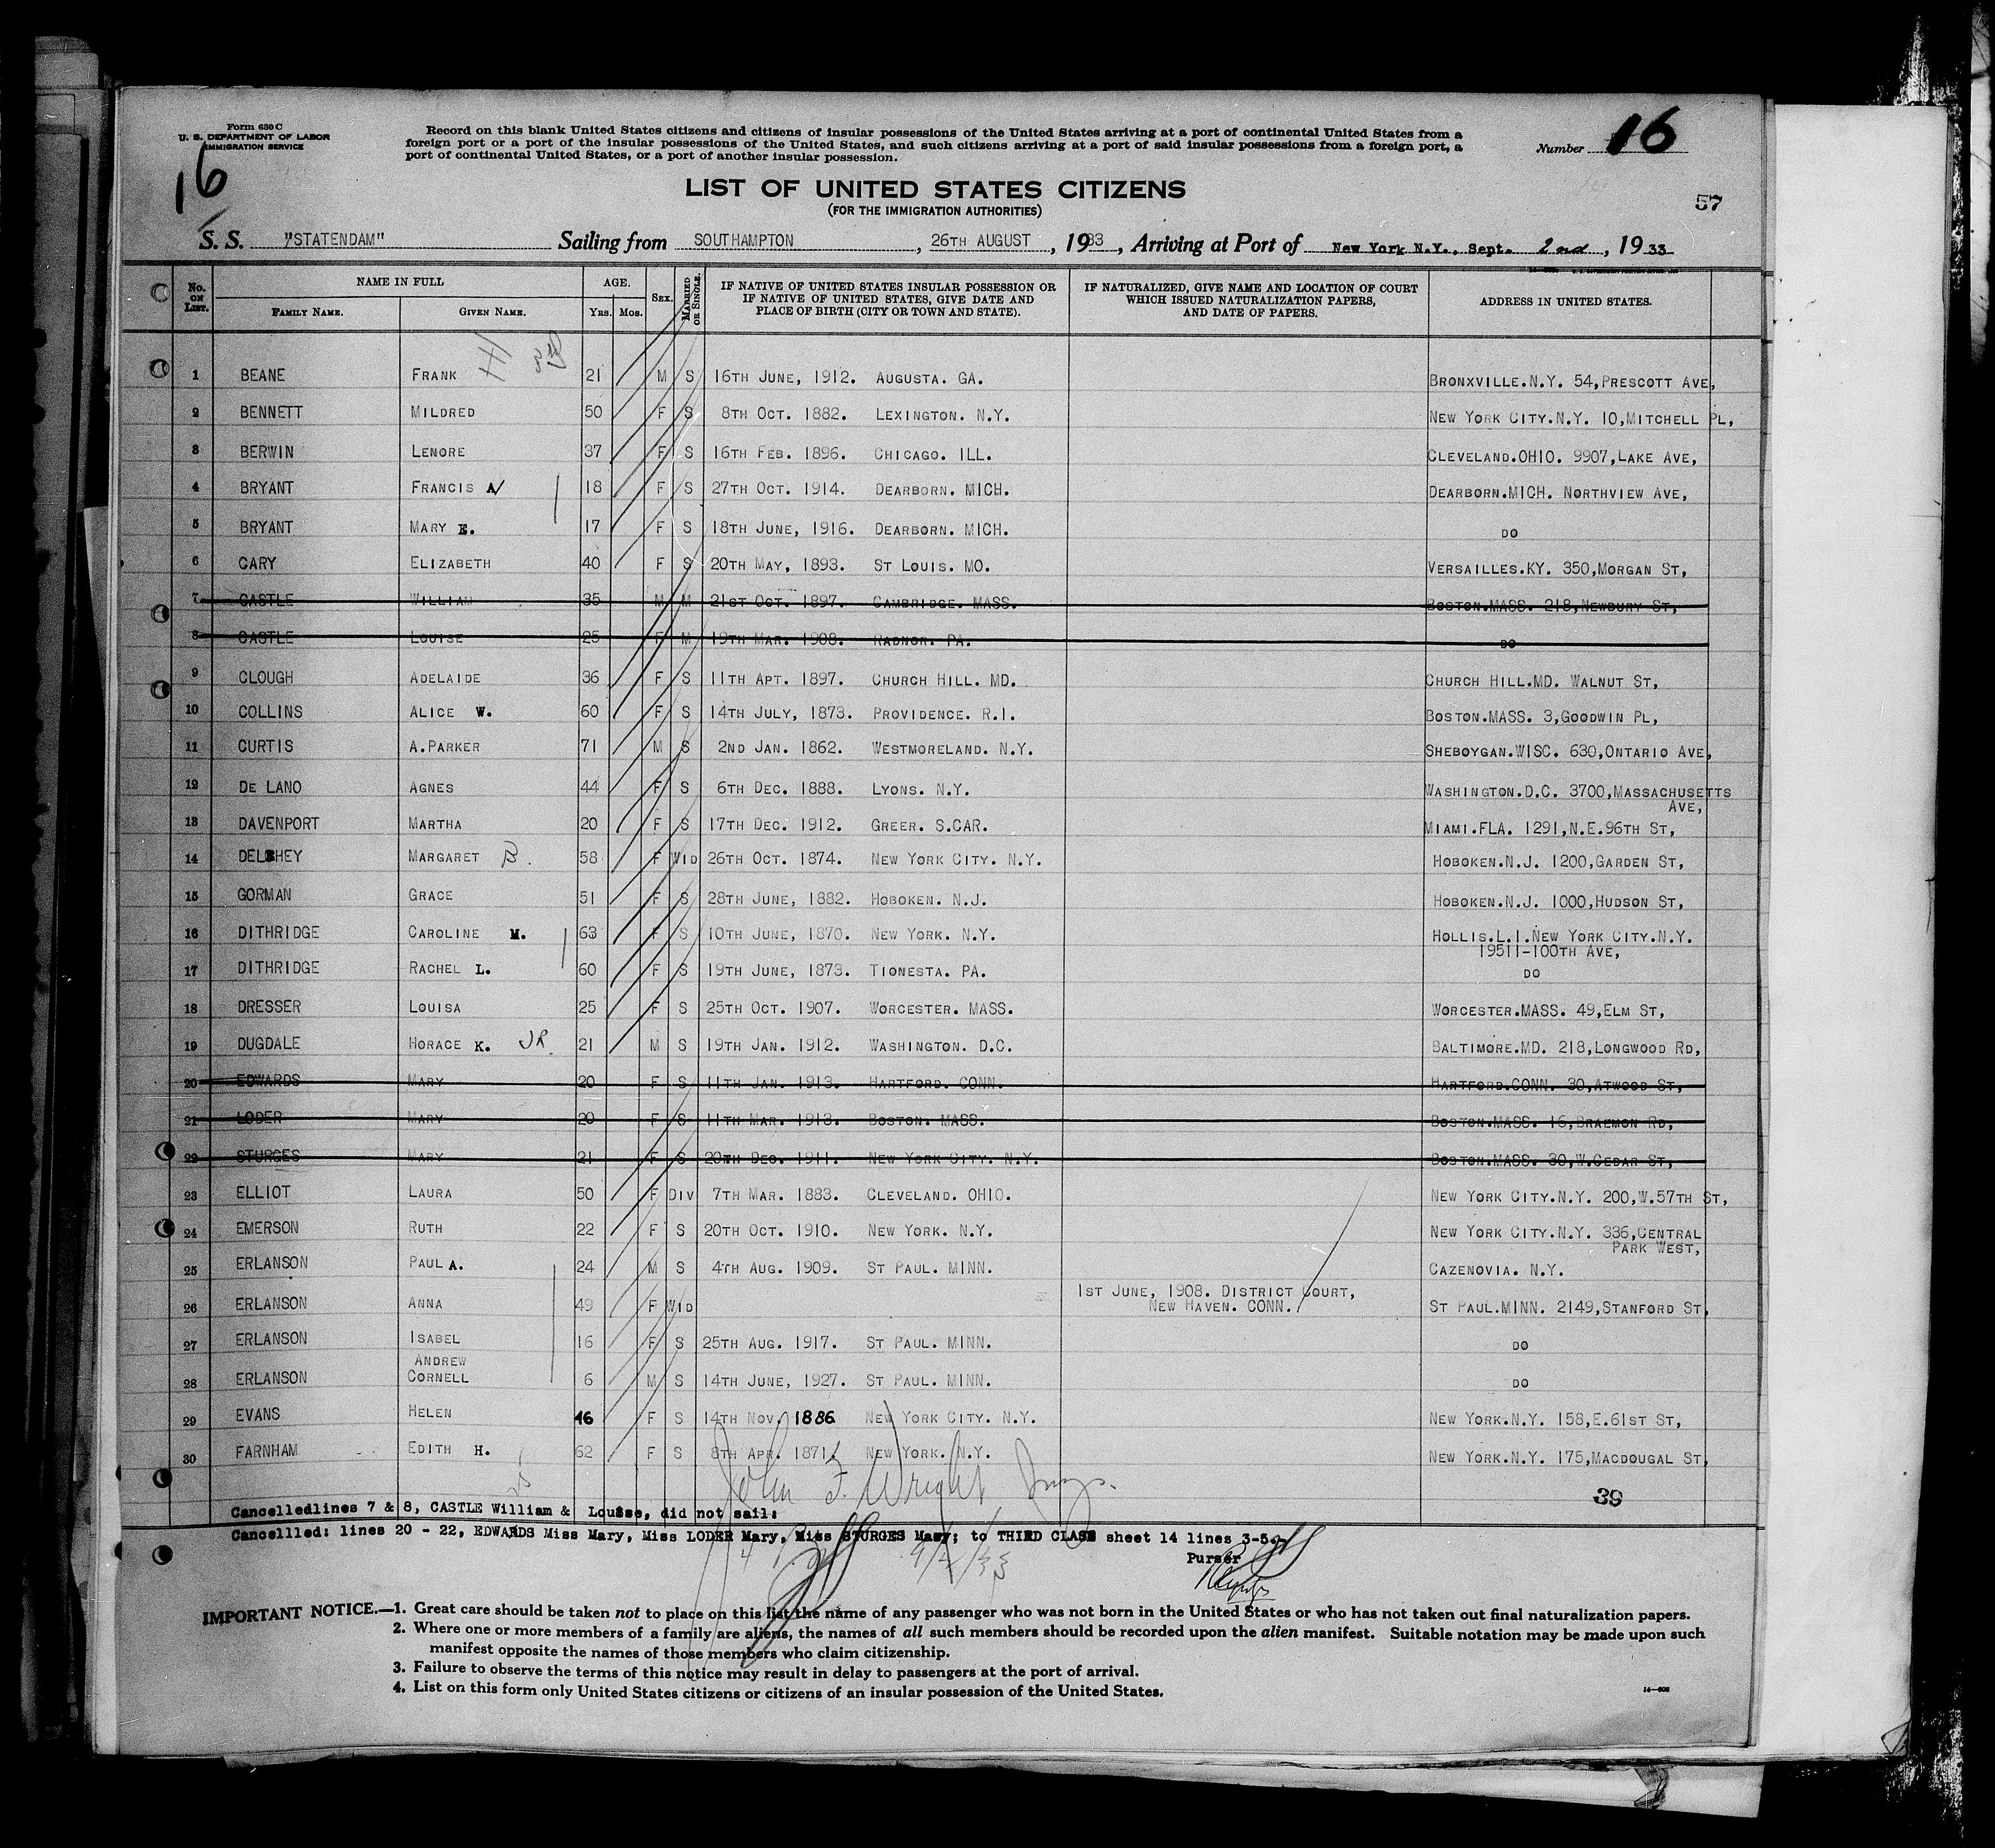 Form 630 C
U. S. DEPARTMENT OF LABOR
IMMIGRATION SERVICE
16
Record on this blank United States citizens and citizens of insular possessions of the United States arriving at a port of continental United States from a
foreign port or a port of the insular possessions of the United States, and such citizens arriving at a port of said insular possessions from a foreign port, a
port of continental United States, or a port of another insular possession.
Number 16
LIST OF UNITED STATES CITIZENS
(FOR THE IMMIGRATION AUTHORITIES)
57
S. S. "STATENDAM" Sailing from SOUTHAMPTON, 26TH AUGUST, 1933, Arriving at Port of New York N.Y., Sept. 2nd, 1933
No. ON LIST. NAME IN FULL FAMILY NAME. GIVEN NAME. AGE. YRS. MOS. SEX. MARRIED OR SINGLE. IF NATIVE OF UNITED STATES INSULAR POSSESSION OR IF NATIVE OF UNITED STATES, GIVE DATE AND PLACE OF BIRTH (CITY OR TOWN AND STATE). IF NATURALIZED, GIVE NAME AND LOCATION OF COURT WHICH ISSUED NATURALIZATION PAPERS, AND DATE OF PAPERS. ADDRESS IN UNITED STATES.
1 BEANE FRANK 21 M S 16TH JUNE, 1912. AUGUSTA. GA. BRONXVILLE.N.Y. 54,PRESCOTT AVE,
2 BENNETT MILDRED 50 F S 8TH OCT. 1882. LEXINGTON. N.Y. NEW YORK CITY.N.Y. 10,MITCHELL PL,
3 BERWIN LENORE 37 F S 16TH FEB. 1896. CHICAGO. ILL. CLEVELAND.OHIO. 9907,LAKE AVE,
4 BRYANT FRANCIS A 18 F S 27TH OCT. 1914. DEARBORN. MICH. DEARBORN.MICH. NORTHVIEW AVE,
5 BRYANT MARY E. 17 F S 18TH JUNE, 1916. DEARBORN. MICH. DO
6 CARY ELIZABETH 40 F S 20TH MAY, 1893. ST LOUIS. MO. VERSAILLES.KY. 350,MORGAN ST,
7 CASTLE WILLIAM 35 M M 21ST OCT. 1897. CAMBRIDGE. MASS. BOSTON.MASS. 218,NEWBURY ST,
8 CASTLE LOUISE 25 F M 19TH MAR. 1908. RADNOR. PA. DO
9 CLOUGH ADELAIDE 36 F S 11TH APT. 1897. CHURCH HILL. MD. CHURCH HILL.MD. WALNUT ST,
10 COLLINS ALICE W. 60 F S 14TH JULY, 1873. PROVIDENCE. R.I. BOSTON.MASS. 3,GOODWIN PL,
11 CURTIS A.PARKER 71 M S 2ND JAN. 1862. WESTMORELAND. N.Y. SHEBOYGAN.WISC. 630,ONTARIO AVE,
12 DE LANO AGNES 44 F S 6TH DEC. 1888. LYONS. N.Y. WASHINGTON.D.C. 3700,MASSACHUSETTS
AVE,
13 DAVENPORT MARTHA 20 F S 17TH DEC. 1912. GREER. S.CAR. MIAMI.FLA. 1291,N.E.96TH ST,
14 MARGARET B. 58 F WID 26TH OCT. 1874. NEW YORK CITY. N.Y. HOBOKEN.N.J. 1200,GARDEN ST,
15 GORMAN GRACE 51 F S 28TH JUNE, 1882. HOBOKEN. N.J. HOBOKEN.N.J. 1000,HUDSON ST,
16 DITHRIDGE CAROLINE M. 63 F S 10TH JUNE, 1870. NEW YORK. N.Y. HOLLIS.L.I.NEW YORK CITY.N.Y.
19511-100TH AVE,
17 DITHRIDGE RACHEL L. 60 F S 19TH JUNE, 1873. TIONESTA. PA. DO
18 DRESSER LOUISA 25 F S 25TH OCT. 1907. WORCESTER. MASS. WORCESTER.MASS. 49,ELM ST,
19 DUGDALE HORACE K. JR. 21 M S 19TH JAN. 1912. WASHINGTON. D.C. BALTIMORE.MD. 218,LONGWOOD RD,
20 EDWARDS MARY 20 F S 11TH JAN. 1913. HARTFORD. CONN. HARTFORD.CONN. 30,ATWOOD ST,
21 LODER MARY 20 F S 11TH MAR. 1913. BOSTON. MASS. BOSTON.MASS. 16,BRAEMON RD,
22 STURGES MARY 21 F S 20TH DEC. 1911. NEW YORK CITY. N.Y. BOSTON.MASS. 30,W.CEDAR ST,
23 ELLIOT LAURA 50 F DIV 7TH MAR. 1883. CLEVELAND. OHIO. NEW YORK CITY.N.Y. 200,W.57TH ST,
24 EMERSON RUTH 22 F S 20TH OCT. 1910. NEW YORK. N.Y. NEW YORK CITY.N.Y. 336,CENTRAL
PARK WEST,
25 ERLANSON PAUL A. 24 M S 4TH AUG. 1909. ST PAUL. MINN. CAZENOVIA. N.Y.
26 ERLANSON ANNA 49 F WID 1ST JUNE, 1908. DISTRICT COURT, NEW HAVEN. CONN. ST PAUL.MINN. 2149,STANFORD ST,
27 ERLANSON ISABEL 16 F S 25TH AUG. 1917. ST PAUL. MINN. DO
28 ERLANSON ANDREW CORNELL 6 M S 14TH JUNE, 1927. ST PAUL. MINN. DO
29 EVANS HELEN 46 F S 14TH NOV. 1886 NEW YORK CITY. N.Y. NEW YORK.N.Y. 158,E.61ST ST,
30 FARNHAM EDITH H. 62 F S 8TH APR. 1871. NEW YORK. N.Y. NEW YORK.N.Y. 175,MACDOUGAL ST,
John F. Wright Insp.
39
Cancelledlines 7 & 8, CASTLE William & Louise, did not sail:
Cancellled: lines 20 - 22, EDWARDS Miss Mary, Miss LODER Mary, Miss STURGES Mary; to THIRD CLASS sheet 14 lines 3-5.
9/2/33
Purser
IMPORTANT NOTICE.—1. Great care should be taken not to place on this list the name of any passenger who was not born in the United States or who has not taken out final naturalization papers.
2. Where one or more members of a family are aliens, the names of all such members should be recorded upon the alien manifest. Suitable notation may be made upon such
manifest opposite the names of those members who claim citizenship.
3. Failure to observe the terms of this notice may result in delay to passengers at the port of arrival.
4. List on this form only United States citizens or citizens of an insular possession of the United States.